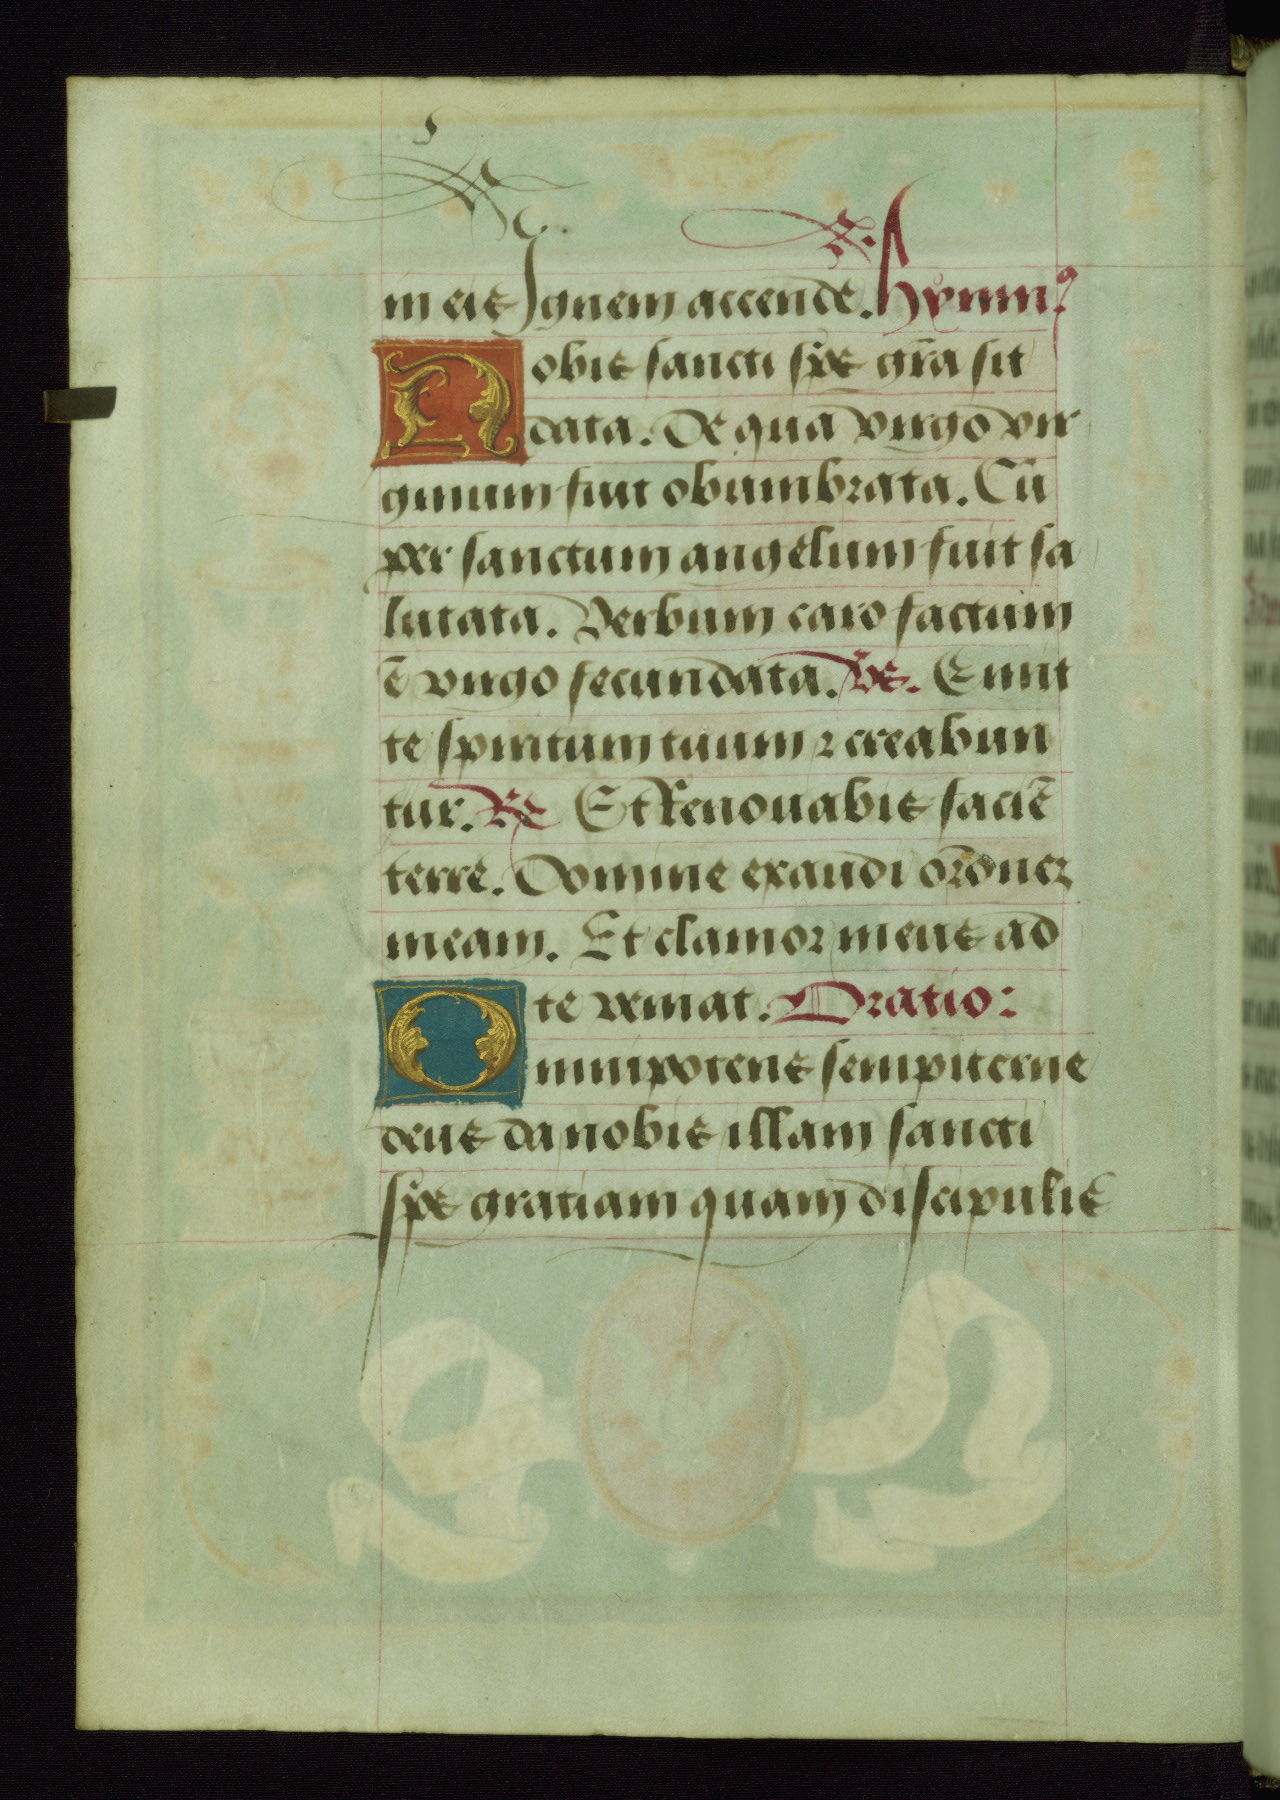 in eis Ignem accende. Hymn⁹
Nobis sancti sp̄s gr̄a sit
data. De qua virgo vir
ginum fuit obumbrata. Cū
per sanctum angelum fuit sa
lutata. Verbum caro factum
ē virgo fecundata. Vs. Emit
te spiritum tuum ꝛ creabun
tur. Rs Et Renouabis faciē
terre. Domine exaudi orōnem
meam. Et clamor meus ad
te veniat. Oratio:
Omnipotens sempiterne
deus da nobis illam sancti
sp̄s gratiam quam discipulis